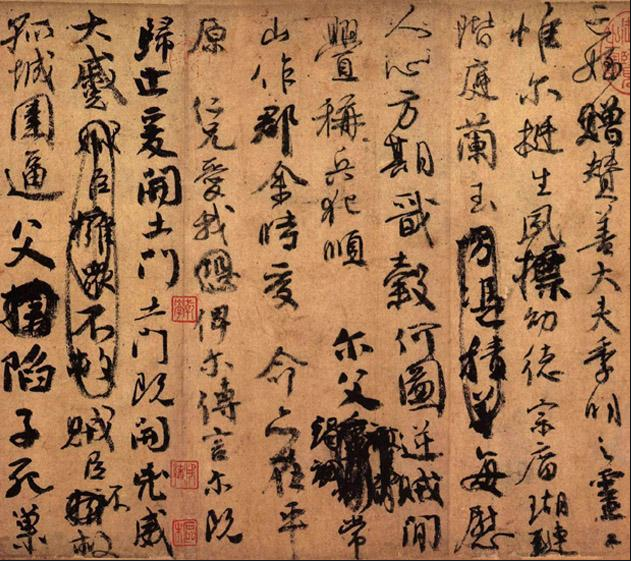 亡姪贈贊善大夫季明之靈曰
惟尔挺生夙標幼德宗廟瑚璉
階庭蘭玉方憑積善每慰
人心方期戩穀何圖逆賊閒
舋稱兵犯順尔父常
山作郡余時受命亦在平
原仁兄愛我恐俾尔傳言尔既
歸止爰開土門土門既開凶威
大蹙賊臣擁衆不救賊臣不救
孤城圍逼父陷子死巢